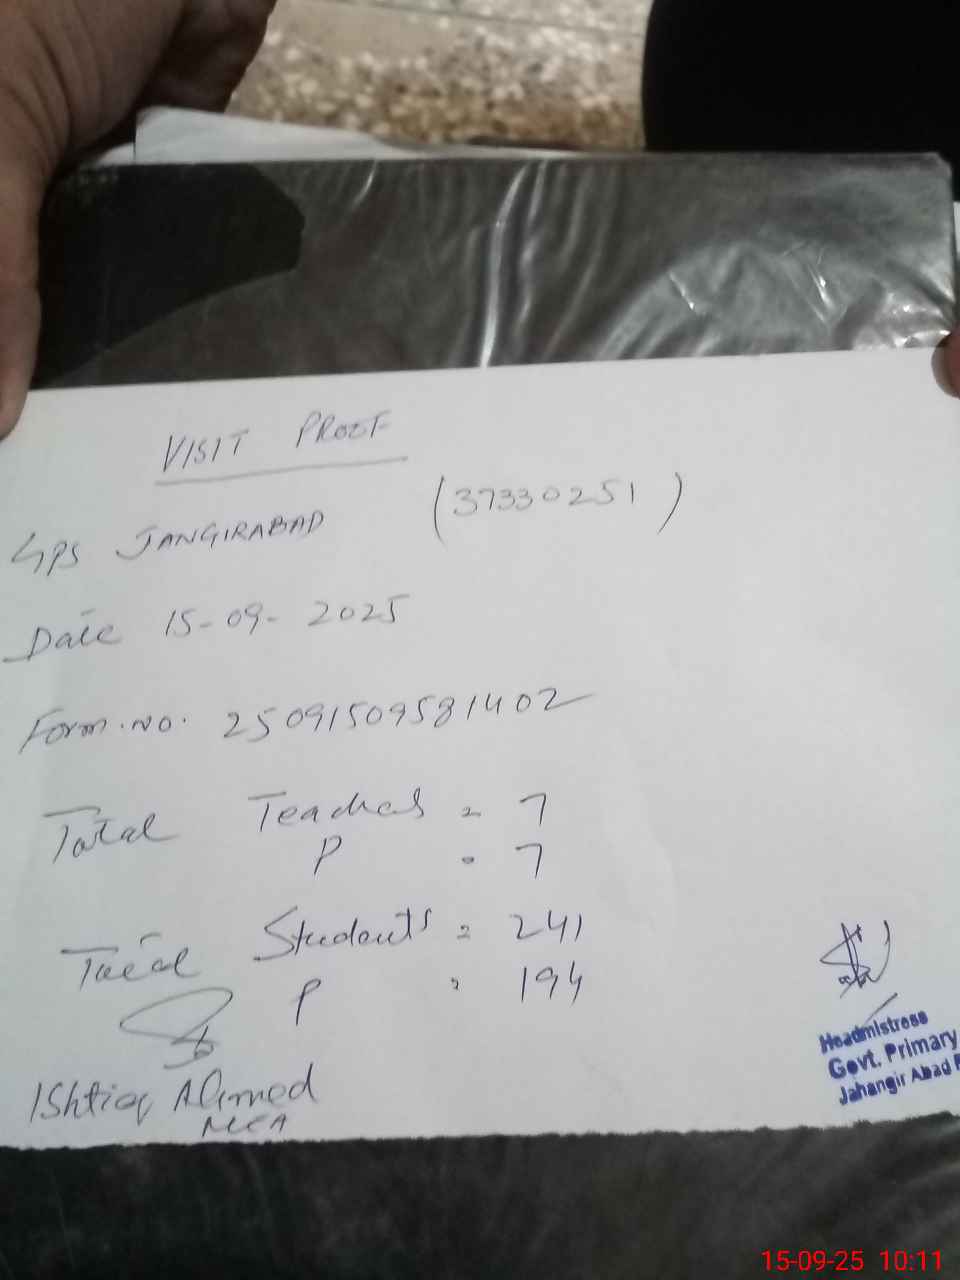 VISIT PROOF
GPS JANGIRABAD (37330251)
Date 15-09-2025
Form.no. 25091509581402
Total Teachers = 7
P = 7
Total Students = 241
P = 194
Ishtiaq Ahmed
MEA
Headmistress
Govt. Primary
Jahangir Abad
15-09-25 10:11